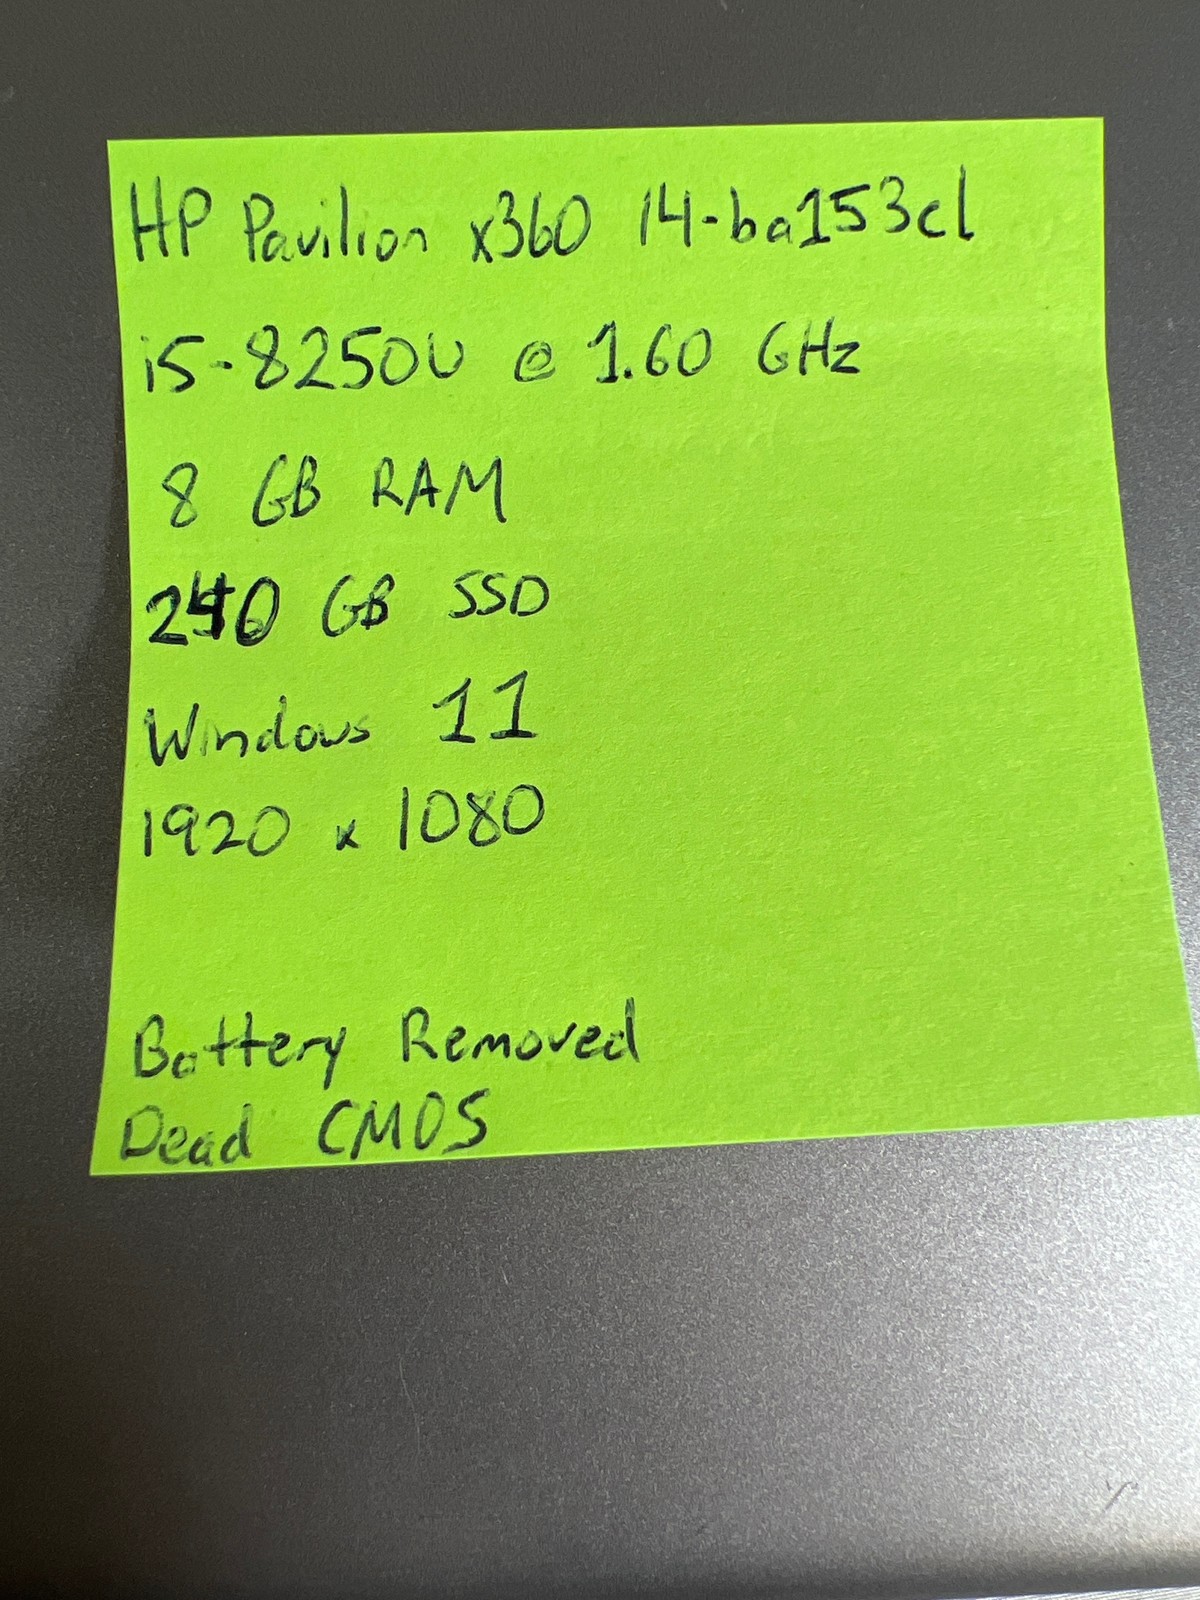 HP Pavilion x360 14-ba153cl
i5-8250U @ 1.60 GHz
8 GB RAM
240 GB SSD
Windows 11
1920 x 1080
Battery Removed
Dead CMOS